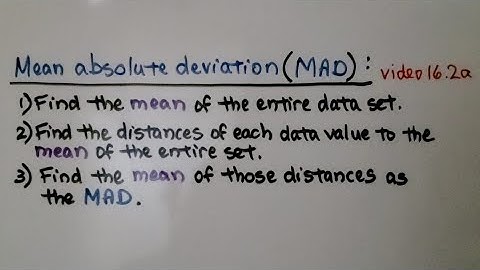 Mean absolute deviation (MAD): video 16.2a
1) Find the mean of the entire data set.
2) Find the distances of each data value to the
mean of the entire set.
3) Find the mean of those distances as
the MAD.